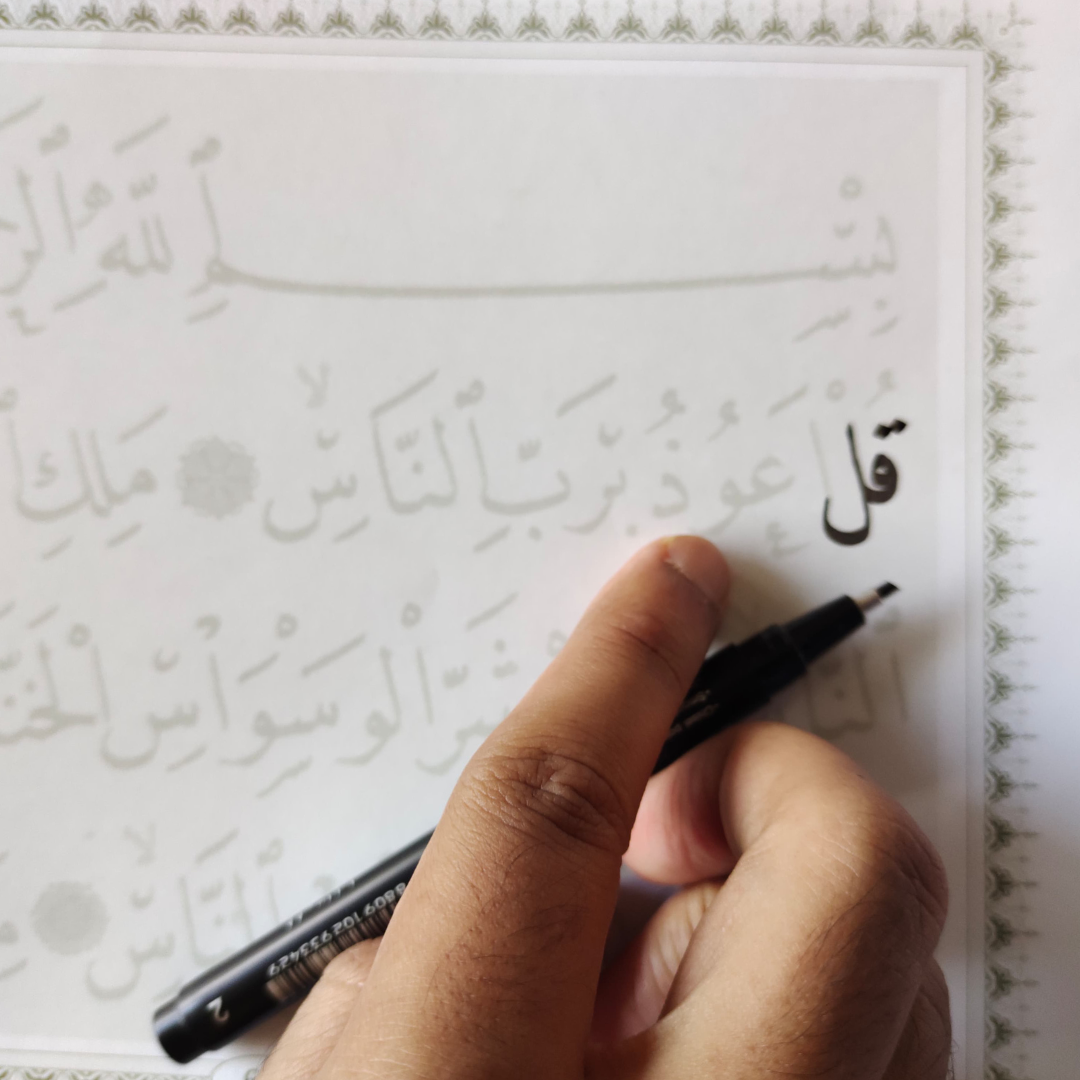 بِسْمِ ٱللَّهِ ٱلرَّ
قُلْ أَعُوذُ بِرَبِّ ٱلنَّاسِ ۙ مَلِكِ
ٱلنَّا شَرِّ ٱلْوَسْوَاسِ ٱلْخَنَّ
ٱلنَّاسِ ۙ
8809102933429
2